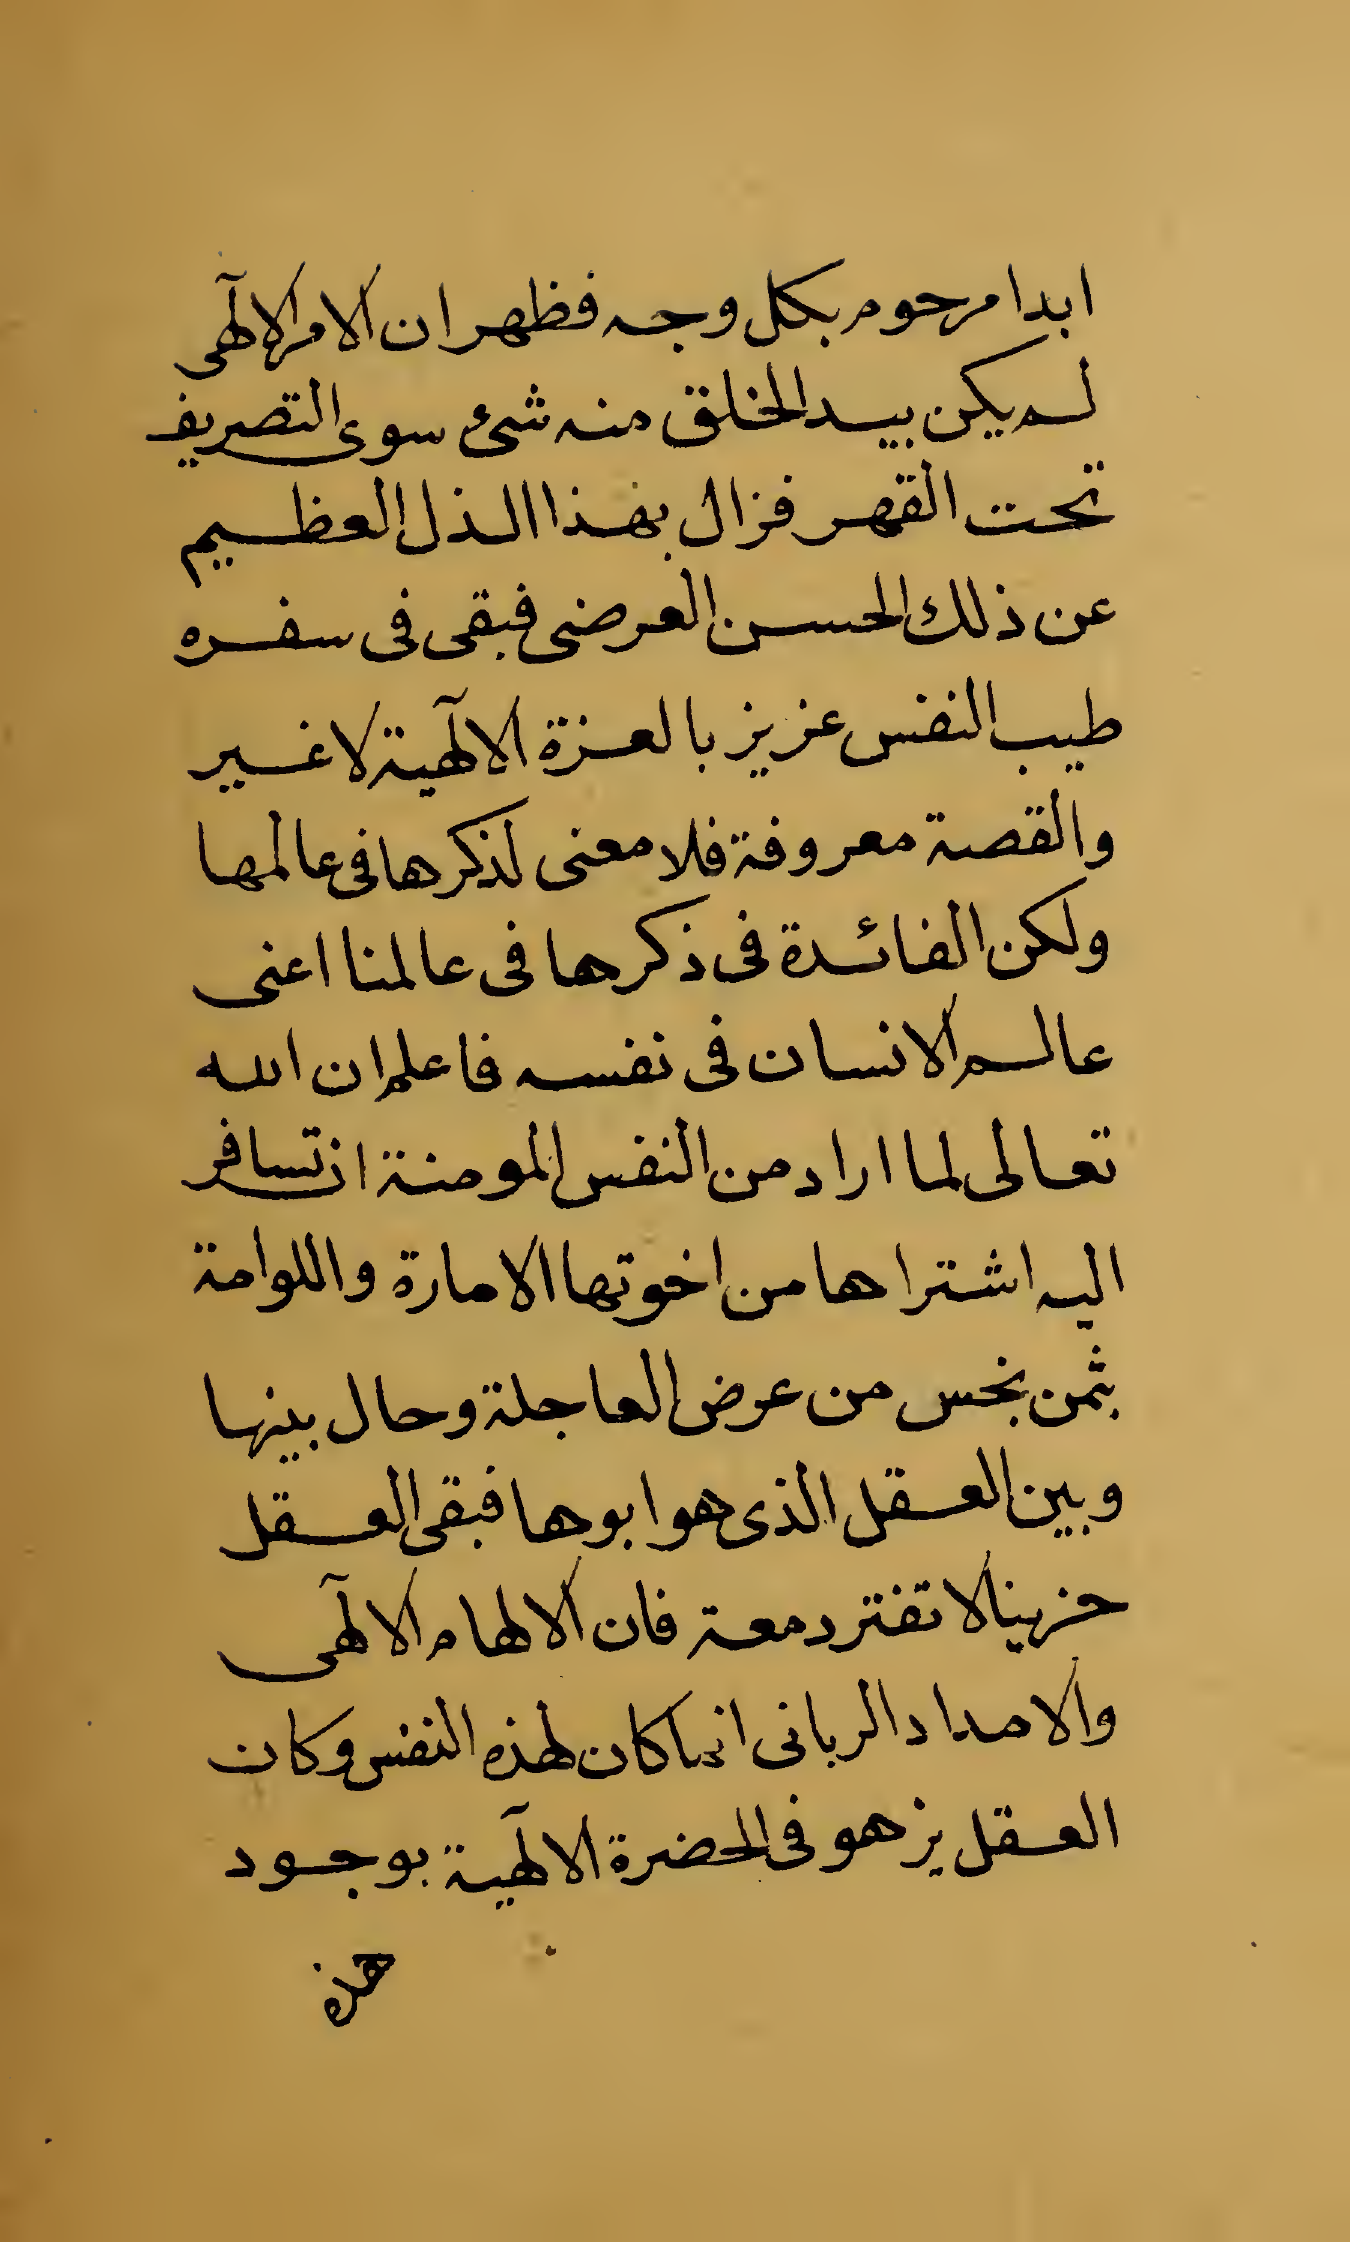 ابدا مرحوم بكل وجه فظهر ان الامر الالٓهى
لم يكن بيد الخلق منه شئ سوى التصريف
تحت القهر فزال بهذا الذل العظيم
عن ذلك الحسن العرضى فبقى فى سفره
طيب النفس عزيز بالعزة الالٓهية لا غير
والقصة معروفة فلا معنى لذكرها فى عالمها
ولكن الفائدة فى ذكرها فى عالمنا اعنى
عالم الانسان فى نفسه فاعلم ان الله
تعالى لما اراد من النفس المومنة ان تسافر
اليه اشتراها من اخوتها الامارة واللوامة
بثمن بخس من عرض العاجلة وحال بينها
وبين العقل الذى هو ابوها فبقى العقل
حزينا لا تفتر دمعته فان الالهام الالٓهى
والامداد الربانى انما كان لهذه النفس وكان
العقل يزهو فى الحضرة الالٓهية بوجود
هذه